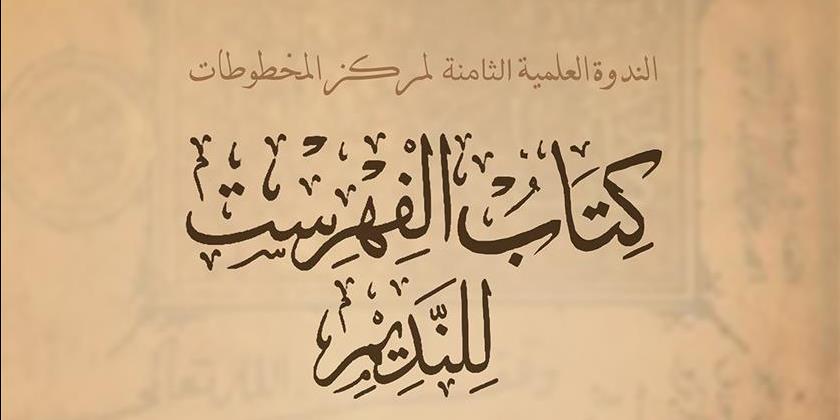 الندوة العلمية الثامنة لمركز المخطوطات
كِتَابُ الفِهْرِسْت
لِلنَّدِيْمِ